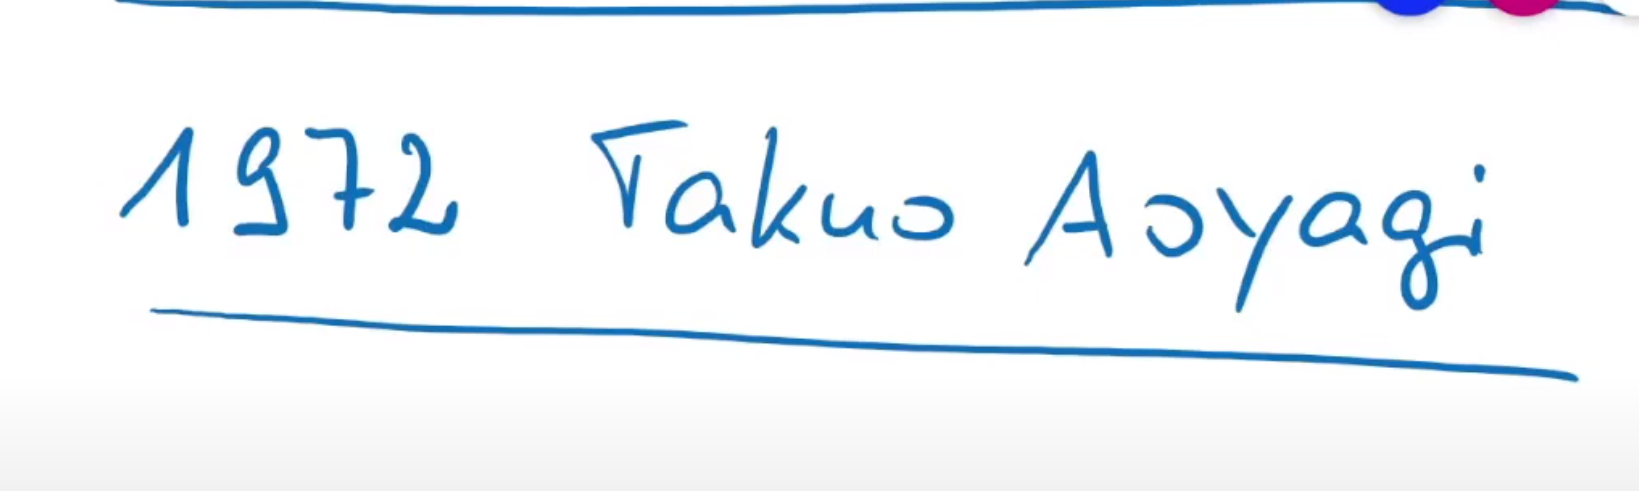 1972 Takuo Aoyagi